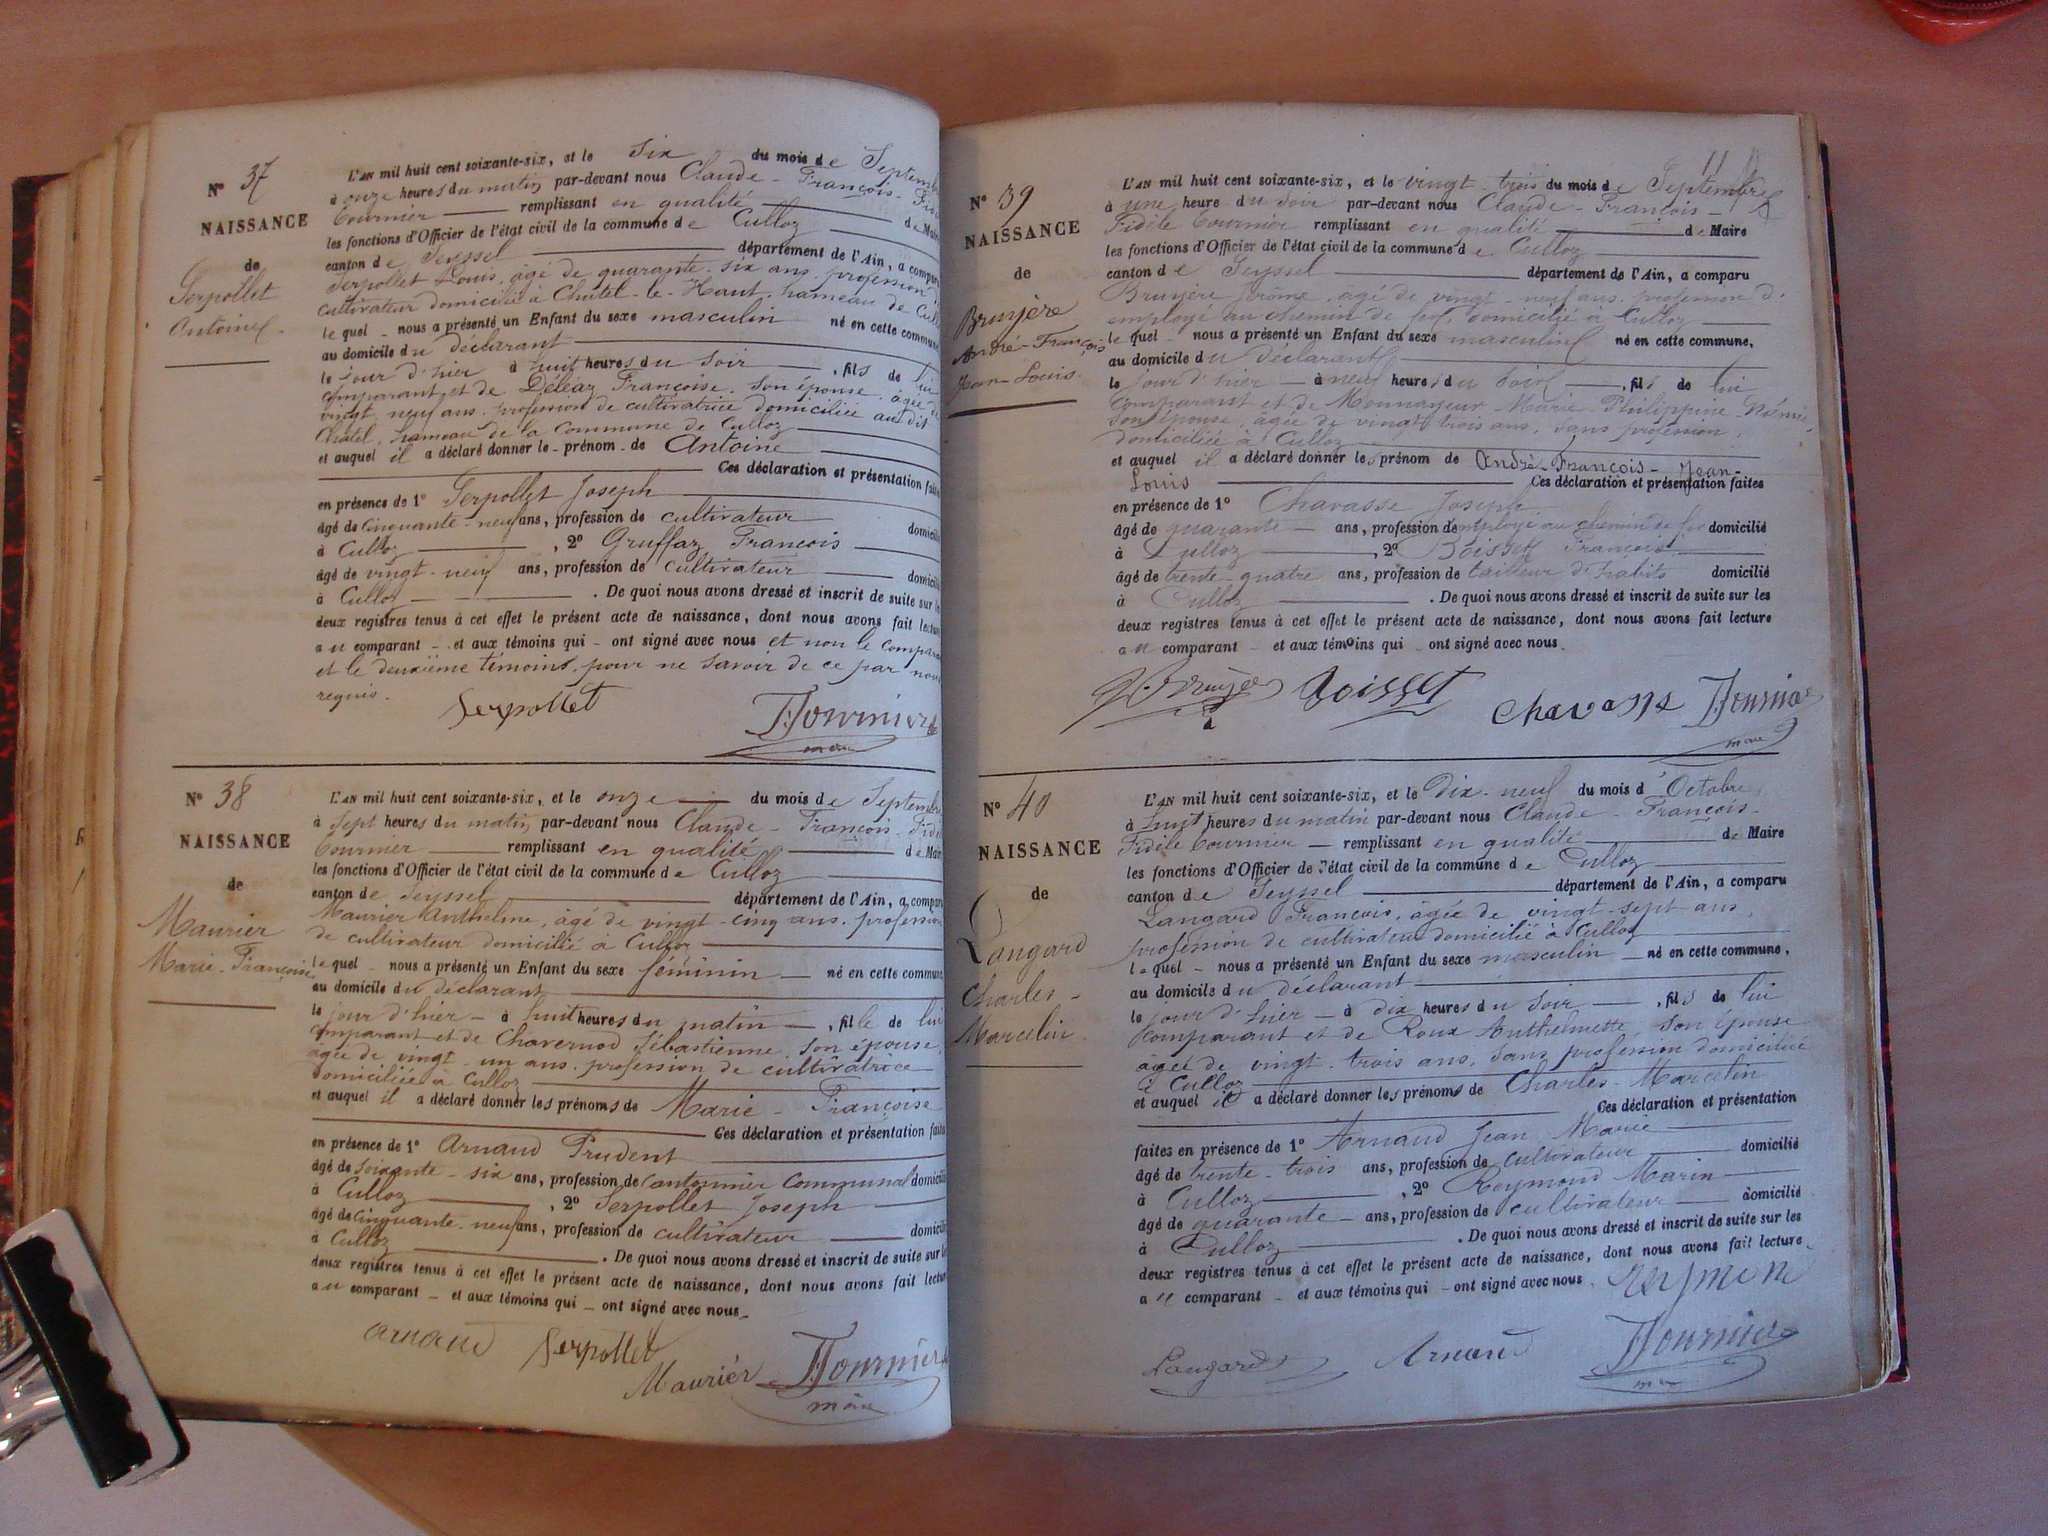 N° 37
NAISSANCE
de
Serpollet
Antoine
L'AN mil huit cent soixante-six, et le Six du mois de Septemb
à onze heures du matin par-devant nous Claude - François - Fidè
Tournier remplissant en qualité de Maire
les fonctions d'Officier de l'état civil de la commune de Culloz
canton de Seyssel département de l'Ain, a comparu
Serpollet Louis, âgé de quarante-six ans, profession
cultivateur domicilié à Chatel-le-Haut, hameau de Cull
lequel nous a présenté un Enfant du sexe masculin né en cette commune
au domicile du déclarant
le jour d'hier à huit heures du soir, fils de lui
comparant et de Déléaz Françoise, son épouse, âgée de
vingt-neuf ans, profession de cultivatrice domiciliée au dit
Chatel, hameau de la commune de Culloz
et auquel il a déclaré donner le prénom de Antoine
Ces déclaration et présentation faites
en présence de 1° Serpollet Joseph
âgé de cinquante-neuf ans, profession de cultivateur domicilié
à Culloz, 2° Gruffaz François
âgé de vingt-neuf ans, profession de cultivateur domicilié
à Culloz. De quoi nous avons dressé et inscrit de suite sur les
deux registres tenus à cet effet le présent acte de naissance, dont nous avons fait lecture
au comparant et aux témoins qui ont signé avec nous et non le compara
et le deuxième témoins, pour ne savoir de ce par nous
requis.
Serpollet Tournier
maire
N° 38
NAISSANCE
de
Maurier
Marie-Françoise
L'AN mil huit cent soixante-six, et le onze du mois de Septembre
à Sept heures du matin par-devant nous Claude - François - Fidè
Tournier remplissant en qualité de Maire
les fonctions d'Officier de l'état civil de la commune de Culloz
canton de Seyssel département de l'Ain, a comparu
Maurier Anthelme, âgé de vingt-cinq ans, profession
de cultivateur domicilié à Culloz
lequel nous a présenté un Enfant du sexe féminin né en cette commune
au domicile du déclarant
le jour d'hier à huit heures du matin, fille de lui
comparant et de Chavernod Sébastienne, son épouse,
âgée de vingt-un ans, profession de cultivatrice
domiciliée à Culloz
et auquel il a déclaré donner les prénoms de Marie - Françoise
Ces déclaration et présentation faites
en présence de 1° Arnaud Prudent
âgé de soixante-six ans, profession de cantonnier communal domicilié
à Culloz, 2° Serpollet Joseph
âgé de cinquante-neuf ans, profession de cultivateur domicilié
à Culloz. De quoi nous avons dressé et inscrit de suite sur les
deux registres tenus à cet effet le présent acte de naissance, dont nous avons fait lecture
au comparant et aux témoins qui ont signé avec nous
arnaud Serpollet
Maurier Tournier
maire
11
N° 39
NAISSANCE
de
Bruyère
André-François
Jean-Louis
L'AN mil huit cent soixante-six, et le vingt-trois du mois de Septembre
à une heure du soir par-devant nous Claude - François -
Fidèle Tournier remplissant en qualité de Maire
les fonctions d'Officier de l'état civil de la commune de Culloz
canton de Seyssel département de l'Ain, a comparu
Bruyère Jérôme, âgé de vingt-neuf ans, profession d'
employé au chemin de fer, domicilié à Culloz
lequel nous a présenté un Enfant du sexe masculin né en cette commune,
au domicile du déclarant
le jour d'hier à neuf heures du soir, fils de lui
comparant et de Monnayeur Marie Philippine Noémie,
son épouse, âgée de vingt trois ans, sans profession,
domiciliée à Culloz
et auquel il a déclaré donner les prénom de André-François-Jean-
Louis Ces déclaration et présentation faites
en présence de 1° Chavasse Joseph
âgé de quarante ans, profession d'employé au chemin de fer domicilié
à Culloz, 2° Boisset François
âgé de trente-quatre ans, profession de tailleur d'habits domicilié
à Culloz. De quoi nous avons dressé et inscrit de suite sur les
deux registres tenus à cet effet le présent acte de naissance, dont nous avons fait lecture
au comparant et aux témoins qui ont signé avec nous.
J. Bruyère Boisset Chavasse Tournier
maire
N° 40
NAISSANCE
de
Langard
Charles-
Marcelin
L'AN mil huit cent soixante-six, et le Dix-neuf du mois d'Octobre
à huit heures du matin par-devant nous Claude - François -
Fidèle Tournier remplissant en qualité de Maire
les fonctions d'Officier de l'état civil de la commune de Culloz
canton de Seyssel département de l'Ain, a comparu
Langard François, âgée de vingt-sept ans,
profession de cultivateur domicilié à Culloz
lequel nous a présenté un Enfant du sexe masculin né en cette commune,
au domicile du déclarant
le jour d'hier à dix heures du soir, fils de lui
comparant et de Roux Anthelmette, son épouse
âgée de vingt-trois ans, sans profession domiciliée
à Culloz
et auquel il a déclaré donner les prénoms de Charles-Marcelin
Ces déclaration et présentation
faites en présence de 1° Arnaud Jean Marie
âgé de trente-trois ans, profession de cultivateur domicilié
à Culloz, 2° Reymond Marin
âgé de quarante ans, profession de cultivateur domicilié
à Culloz. De quoi nous avons dressé et inscrit de suite sur les
deux registres tenus à cet effet le présent acte de naissance, dont nous avons fait lecture
au comparant et aux témoins qui ont signé avec nous.
Langard Arnaud Tournier